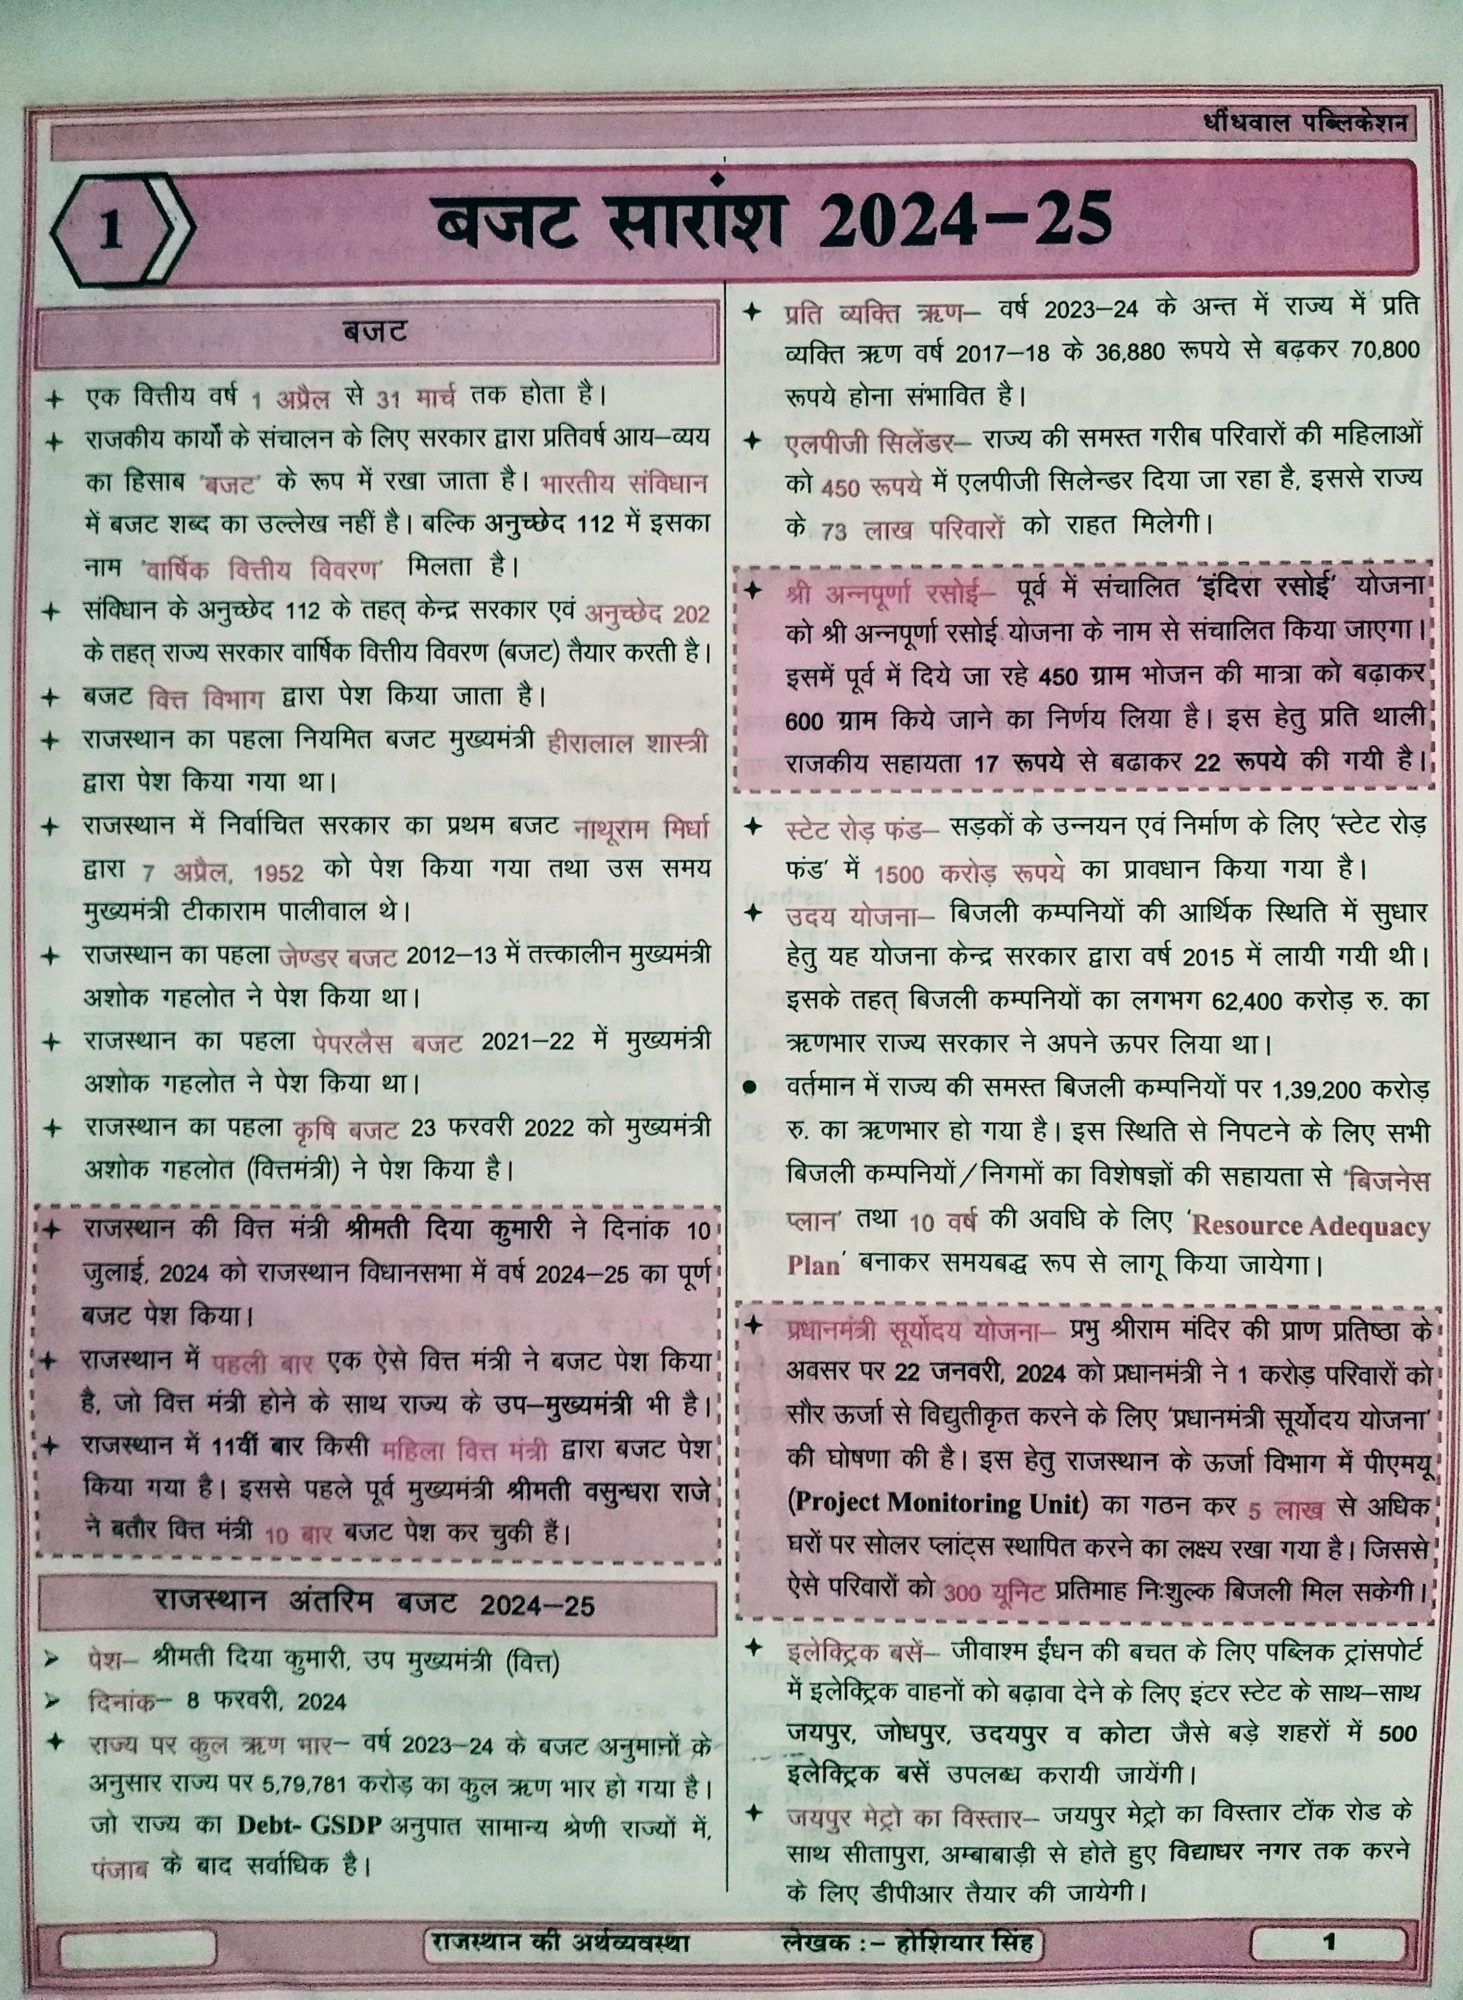 धींधवाल पब्लिकेशन
1
बजट सारांश 2024–25
बजट
एक वित्तीय वर्ष 1 अप्रैल से 31 मार्च तक होता है।
राजकीय कार्यों के संचालन के लिए सरकार द्वारा प्रतिवर्ष आय–व्यय
का हिसाब 'बजट' के रूप में रखा जाता है। भारतीय संविधान
में बजट शब्द का उल्लेख नहीं है। बल्कि अनुच्छेद 112 में इसका
नाम 'वार्षिक वित्तीय विवरण' मिलता है।
संविधान के अनुच्छेद 112 के तहत् केन्द्र सरकार एवं अनुच्छेद 202
के तहत् राज्य सरकार वार्षिक वित्तीय विवरण (बजट) तैयार करती है।
बजट वित्त विभाग द्वारा पेश किया जाता है।
राजस्थान का पहला नियमित बजट मुख्यमंत्री हीरालाल शास्त्री
द्वारा पेश किया गया था।
राजस्थान में निर्वाचित सरकार का प्रथम बजट नाथूराम मिर्धा
द्वारा 7 अप्रैल, 1952 को पेश किया गया तथा उस समय
मुख्यमंत्री टीकाराम पालीवाल थे।
राजस्थान का पहला जेण्डर बजट 2012–13 में तत्कालीन मुख्यमंत्री
अशोक गहलोत ने पेश किया था।
राजस्थान का पहला पेपरलैस बजट 2021–22 में मुख्यमंत्री
अशोक गहलोत ने पेश किया था।
राजस्थान का पहला कृषि बजट 23 फरवरी 2022 को मुख्यमंत्री
अशोक गहलोत (वित्तमंत्री) ने पेश किया है।
राजस्थान की वित्त मंत्री श्रीमती दिया कुमारी ने दिनांक 10
जुलाई, 2024 को राजस्थान विधानसभा में वर्ष 2024–25 का पूर्ण
बजट पेश किया।
राजस्थान में पहली बार एक ऐसे वित्त मंत्री ने बजट पेश किया
है, जो वित्त मंत्री होने के साथ राज्य के उप–मुख्यमंत्री भी है।
राजस्थान में 11वीं बार किसी महिला वित्त मंत्री द्वारा बजट पेश
किया गया है। इससे पहले पूर्व मुख्यमंत्री श्रीमती वसुन्धरा राजे
ने बतौर वित्त मंत्री 10 बार बजट पेश कर चुकी हैं।
राजस्थान अंतरिम बजट 2024–25
पेश– श्रीमती दिया कुमारी, उप मुख्यमंत्री (वित्त)
दिनांक– 8 फरवरी, 2024
राज्य पर कुल ऋण भार– वर्ष 2023–24 के बजट अनुमानों के
अनुसार राज्य पर 5,79,781 करोड़ का कुल ऋण भार हो गया है।
जो राज्य का Debt- GSDP अनुपात सामान्य श्रेणी राज्यों में,
पंजाब के बाद सर्वाधिक है।
प्रति व्यक्ति ऋण– वर्ष 2023–24 के अन्त में राज्य में प्रति
व्यक्ति ऋण वर्ष 2017–18 के 36,880 रूपये से बढ़कर 70,800
रूपये होना संभावित है।
एलपीजी सिलेंडर– राज्य की समस्त गरीब परिवारों की महिलाओं
को 450 रूपये में एलपीजी सिलेन्डर दिया जा रहा है, इससे राज्य
के 73 लाख परिवारों को राहत मिलेगी।
श्री अन्नपूर्णा रसोई– पूर्व में संचालित 'इंदिरा रसोई' योजना
को श्री अन्नपूर्णा रसोई योजना के नाम से संचालित किया जाएगा।
इसमें पूर्व में दिये जा रहे 450 ग्राम भोजन की मात्रा को बढ़ाकर
600 ग्राम किये जाने का निर्णय लिया है। इस हेतु प्रति थाली
राजकीय सहायता 17 रूपये से बढाकर 22 रूपये की गयी है।
स्टेट रोड़ फंड– सड़कों के उन्नयन एवं निर्माण के लिए 'स्टेट रोड़
फंड' में 1500 करोड़ रूपये का प्रावधान किया गया है।
उदय योजना– बिजली कम्पनियों की आर्थिक स्थिति में सुधार
हेतु यह योजना केन्द्र सरकार द्वारा वर्ष 2015 में लायी गयी थी।
इसके तहत् बिजली कम्पनियों का लगभग 62,400 करोड़ रु. का
ऋणभार राज्य सरकार ने अपने ऊपर लिया था।
वर्तमान में राज्य की समस्त बिजली कम्पनियों पर 1,39,200 करोड़
रु. का ऋणभार हो गया है। इस स्थिति से निपटने के लिए सभी
बिजली कम्पनियों/निगमों का विशेषज्ञों की सहायता से 'बिजनेस
प्लान' तथा 10 वर्ष की अवधि के लिए 'Resource Adequacy
Plan' बनाकर समयबद्ध रूप से लागू किया जायेगा।
प्रधानमंत्री सूर्योदय योजना– प्रभु श्रीराम मंदिर की प्राण प्रतिष्ठा के
अवसर पर 22 जनवरी, 2024 को प्रधानमंत्री ने 1 करोड़ परिवारों को
सौर ऊर्जा से विद्युतीकृत करने के लिए 'प्रधानमंत्री सूर्योदय योजना'
की घोषणा की है। इस हेतु राजस्थान के ऊर्जा विभाग में पीएमयू
(Project Monitoring Unit) का गठन कर 5 लाख से अधिक
घरों पर सोलर प्लांट्स स्थापित करने का लक्ष्य रखा गया है। जिससे
ऐसे परिवारों को 300 यूनिट प्रतिमाह निःशुल्क बिजली मिल सकेगी।
इलेक्ट्रिक बसें– जीवाश्म ईंधन की बचत के लिए पब्लिक ट्रांसपोर्ट
में इलेक्ट्रिक वाहनों को बढ़ावा देने के लिए इंटर स्टेट के साथ–साथ
जयपुर, जोधपुर, उदयपुर व कोटा जैसे बड़े शहरों में 500
इलेक्ट्रिक बसें उपलब्ध करायी जायेंगी।
जयपुर मेट्रो का विस्तार– जयपुर मेट्रो का विस्तार टोंक रोड के
साथ सीतापुरा, अम्बाबाड़ी से होते हुए विद्याधर नगर तक करने
के लिए डीपीआर तैयार की जायेगी।
राजस्थान की अर्थव्यवस्था लेखक :– होशियार सिंह
1